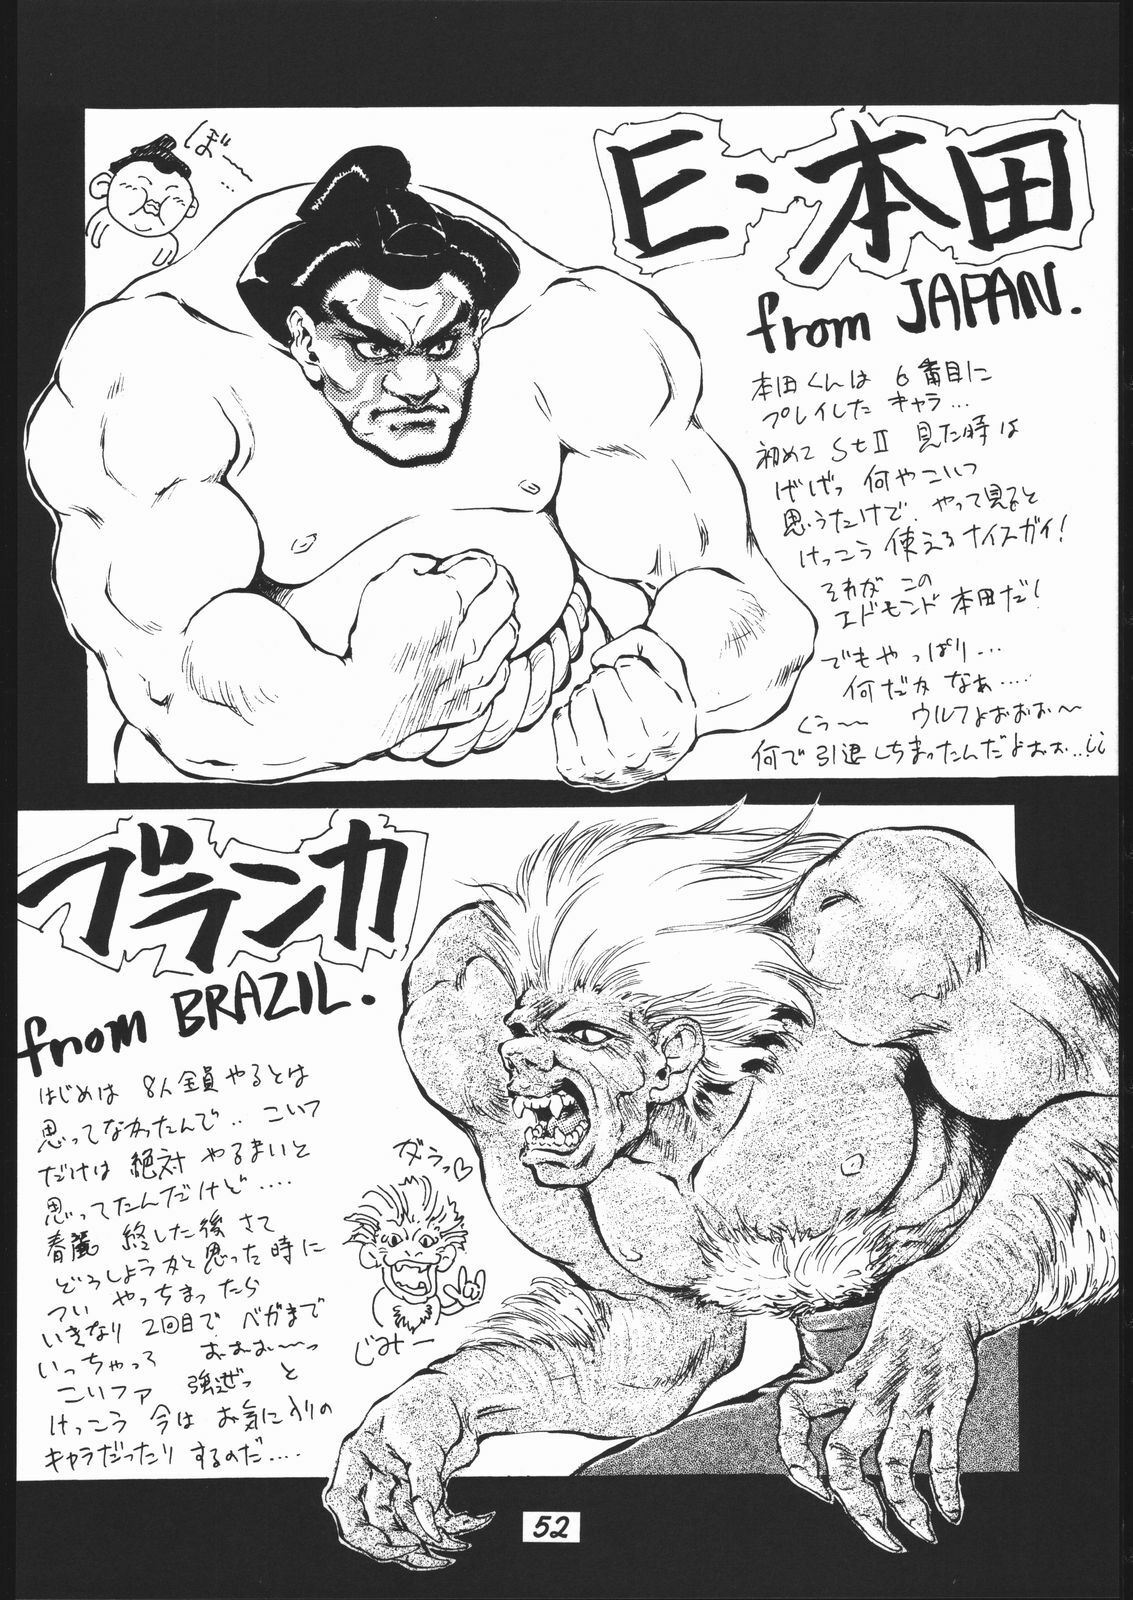 ぼーー…
E・本田
from JAPAN.
本田くんは 6番目に
プレイした キャラ…
初めて StⅡ 見た時は
げげっ 何やこいつ
思うたけど、やって見ると
けっこう 使えるナイスガイ!
それが この
エドモンド 本田だ!
でもやっぱり…
何だか なぁ….
くぅ〜〜 ウルフよぉぉぉ〜
何で引退しちまったんだよぉぉ…
ブランカ
from BRAZIL.
はじめは 8人全員やるとは
思ってなかったんで‥ こいつ
だけは 絶対 やるまいと
思ってたんだけど….
春麗 終した後 さて
どうしようかと思った時に
つい やっちまったら
いきなり 2回目で ベガまで
いっちゃって おおお〜っ
こいつァ 強ぜっ と
けっこう 今は お気に入りの
キャラだったり するのだ….
ガうっ♡
じみー
52